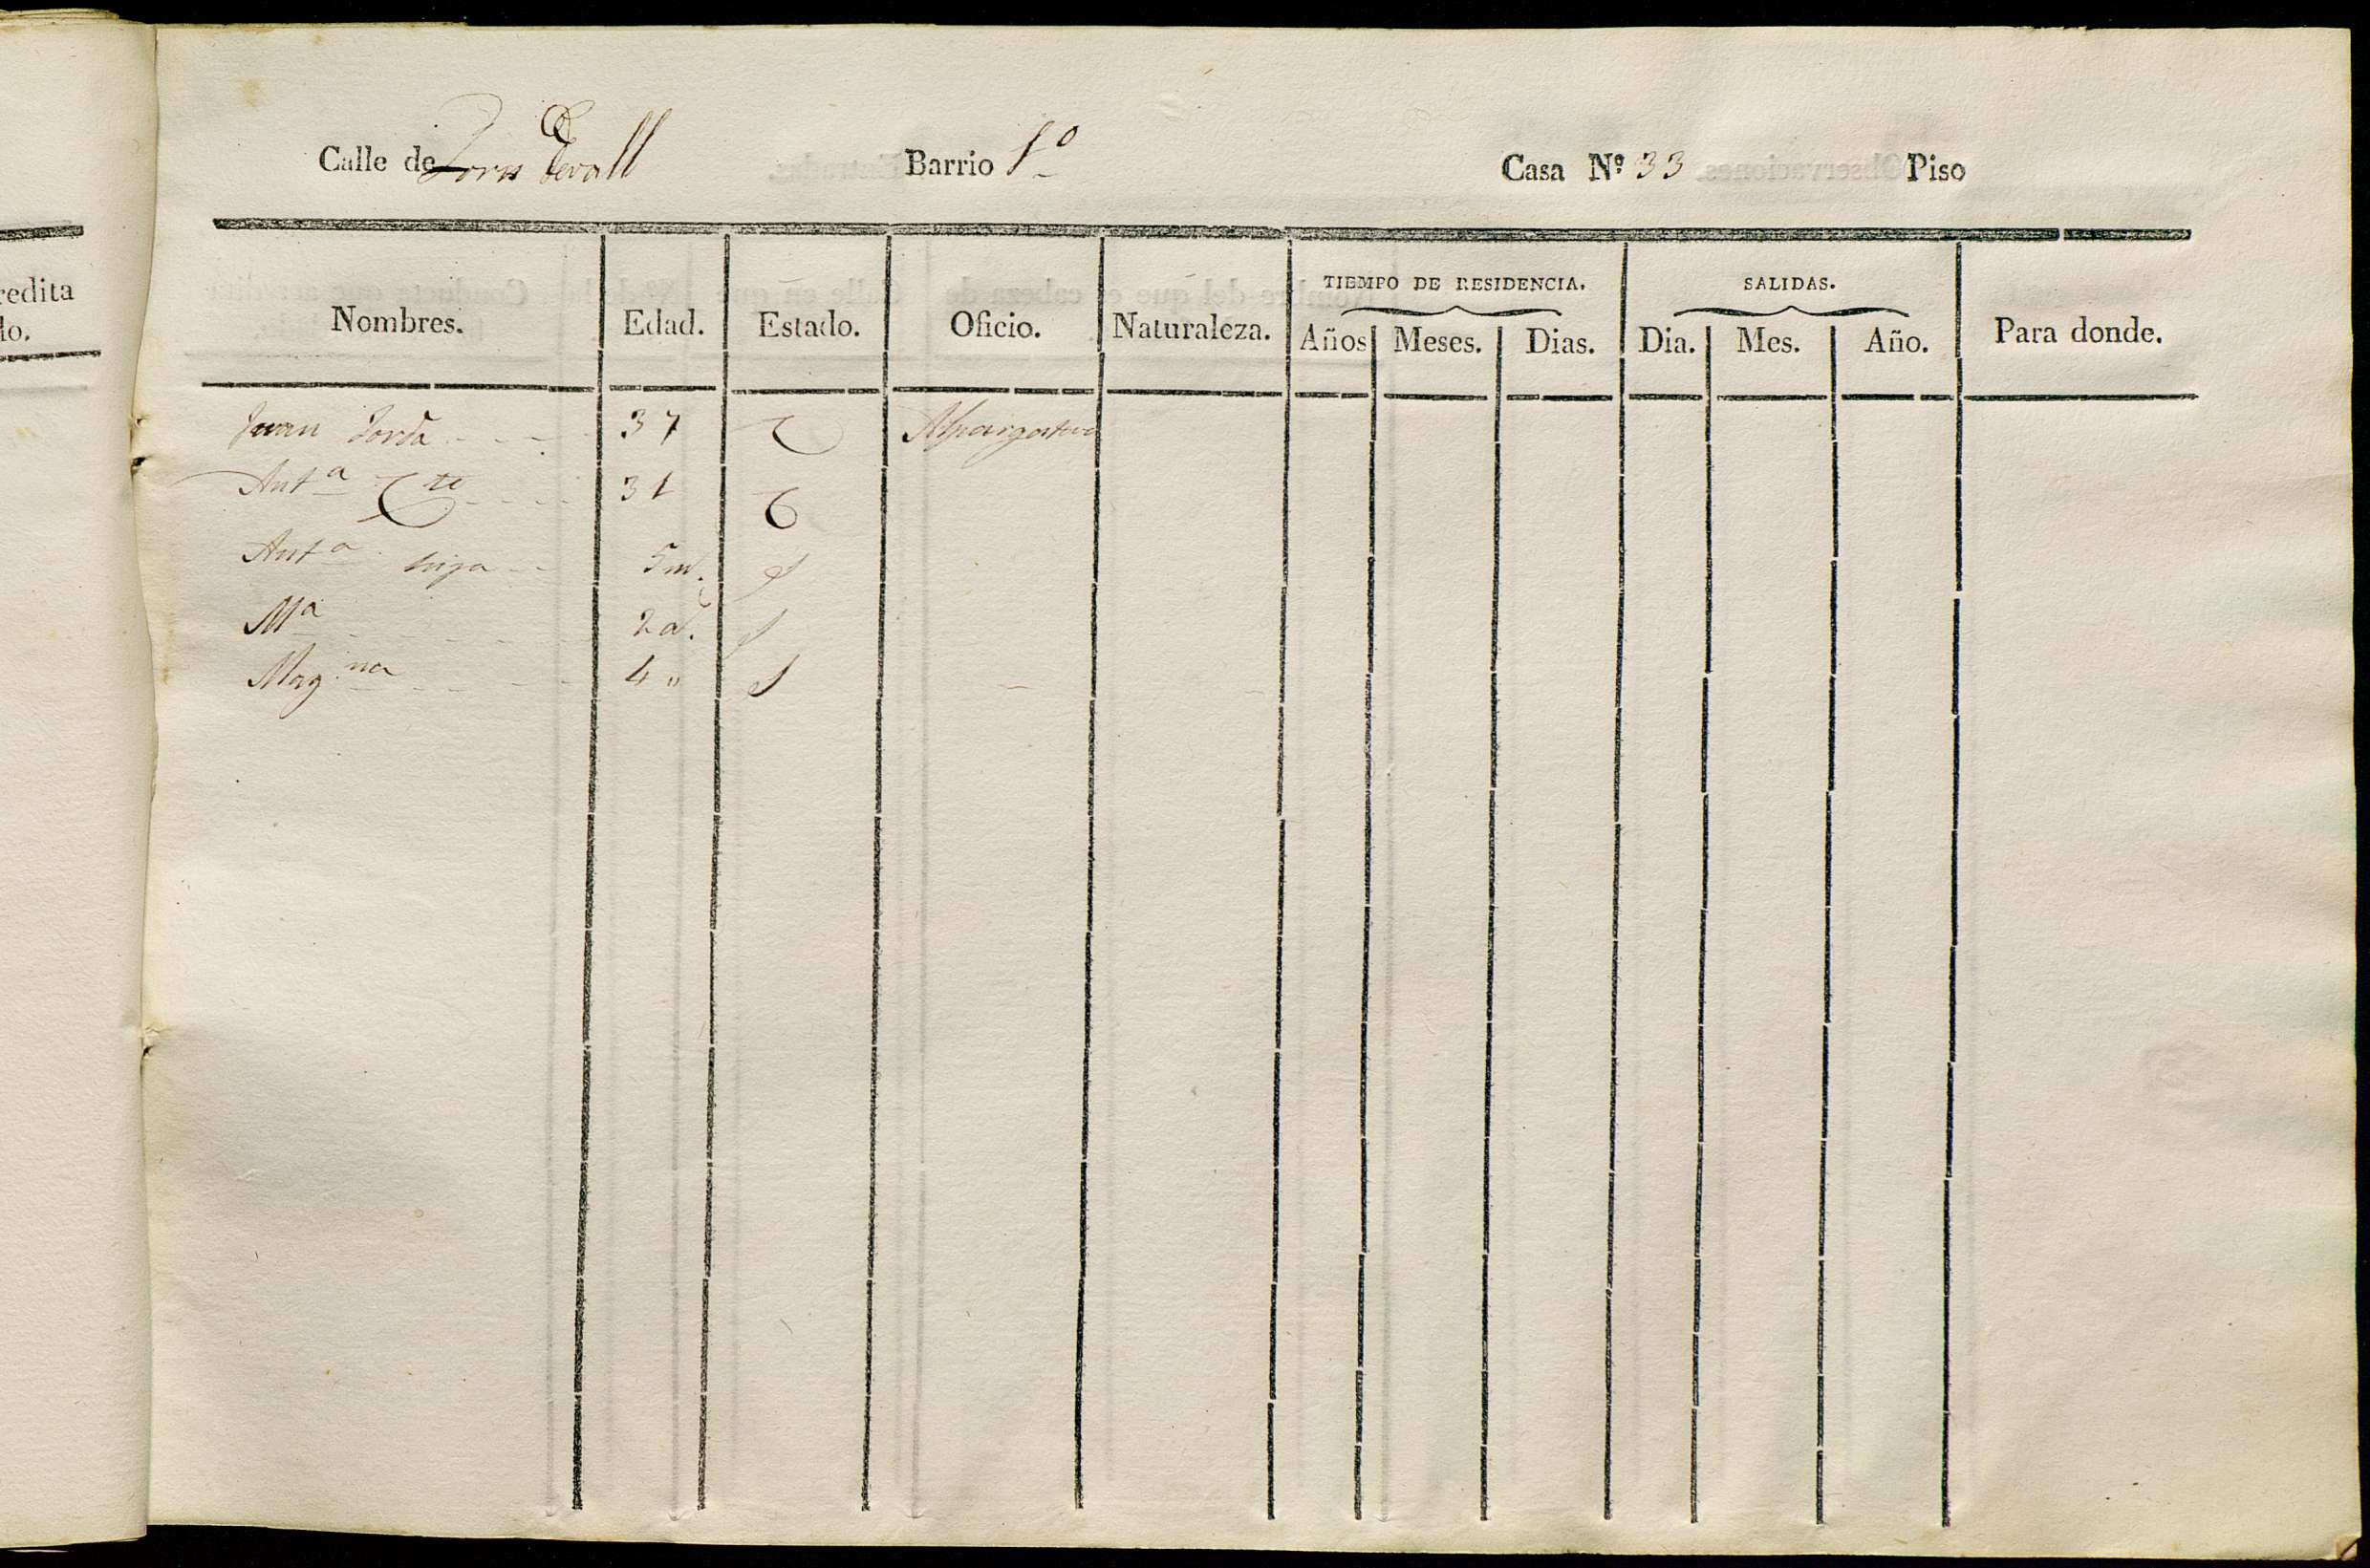 redita
do.
Calle de Torn Cerall Barrio 1º Casa Nº 33 Piso
Nombres. Edad. Estado. Oficio. Naturaleza. TIEMPO DE RESIDENCIA. Años Meses. Dias. SALIDAS. Dia. Mes. Año. Para donde.
Juan Jordà 37 C Alpargatero
Antª 31 C
Antª hija 5 m. S
Mª 2 a. S
Magna 4 " S